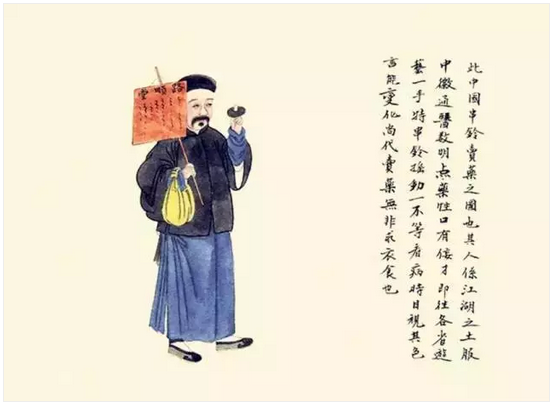 此中國串鈴賣藥之圖也其人係江湖之士服
中徽通醫数明点藥性口有佞才即往各省遊
藝一手持串鈴搖動一不等看病特日視其色
言能變化尚代賣藥無非求衣食也